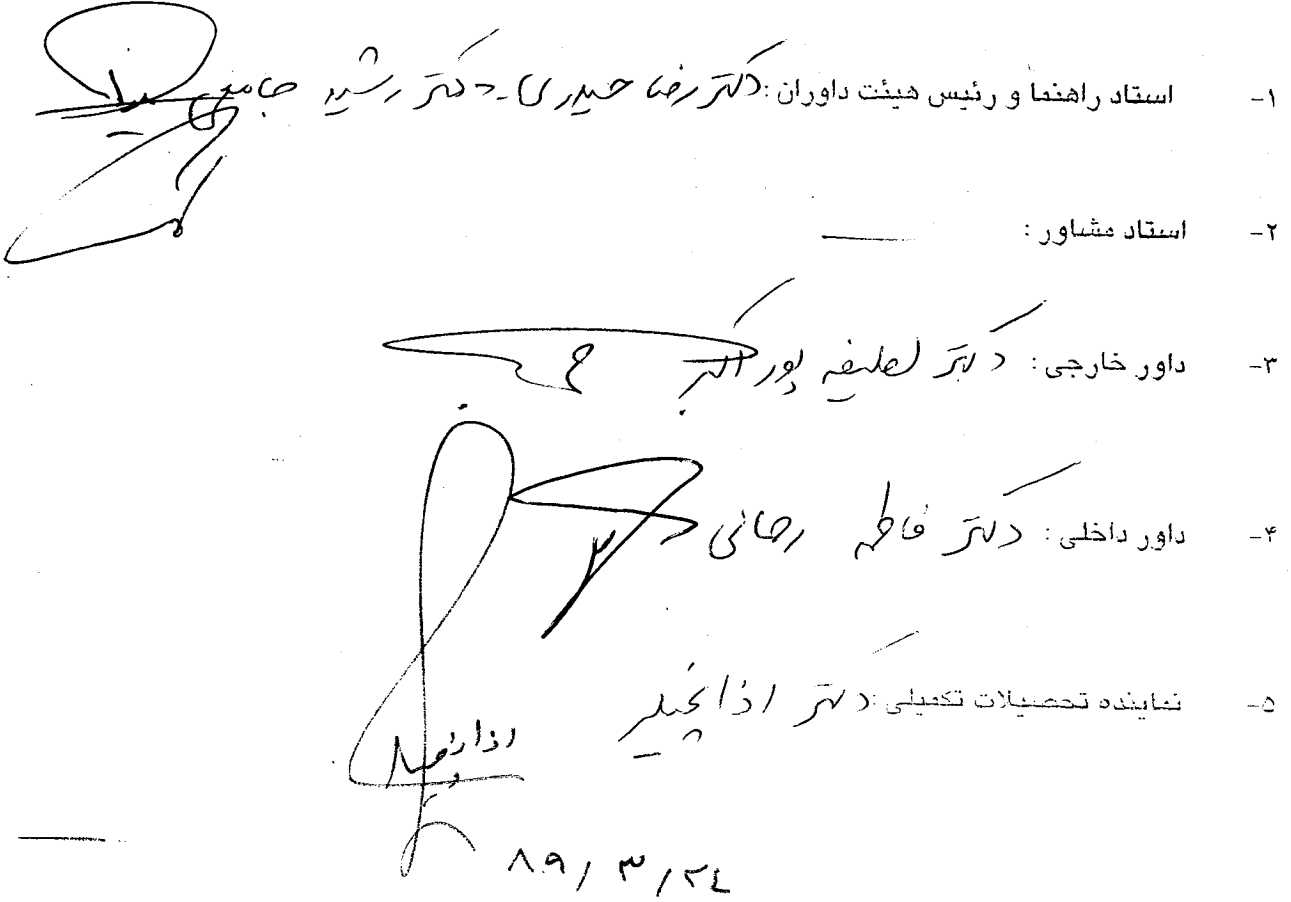 ۱- استاد راهنما و رئیس هیئت داوران: دکتر رضا حیدری - دکتر رشید جامعی
۲- استاد مشاور:
۳- داور خارجی: دکتر لطیفه پور اکبر
۴- داور داخلی: دکتر فاطمه رحمانی
۵- نماینده تحصیلات تکمیلی: دکتر
۸۹/۳/۲۴